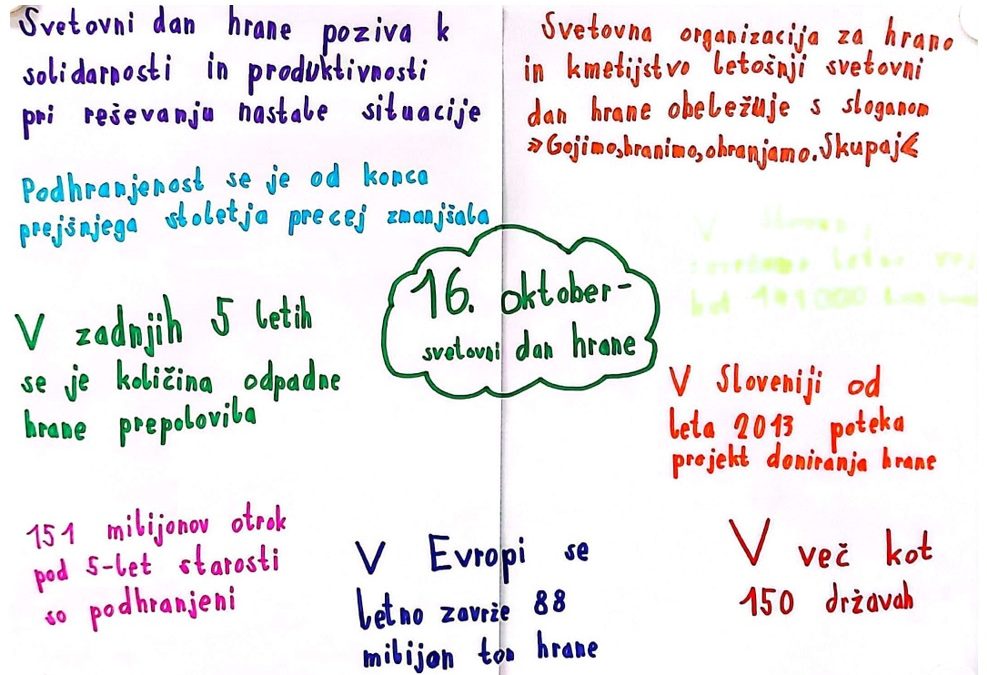 Svetovni dan hrane poziva k
solidarnosti in produktivnosti
pri reševanju nastale situacije
Svetovna organizacija za hrano
in kmetijstvo letošnji svetovni
dan hrane obeležuje s sloganom
»Gojimo,hranimo,ohranjamo.Skupaj«
Podhranjenost se je od konca
prejšnjega stoletja precej zmanjšala
V
letno
kot 141000 ton
16. oktober-
svetovni dan hrane
V zadnjih 5 letih
se je količina odpadne
hrane prepolovila
V Sloveniji od
leta 2013 poteka
projekt doniranja hrane
151 milijonov otrok
pod 5-let starosti
so podhranjeni
V Evropi se
letno zavrže 88
milijon ton hrane
V več kot
150 državah